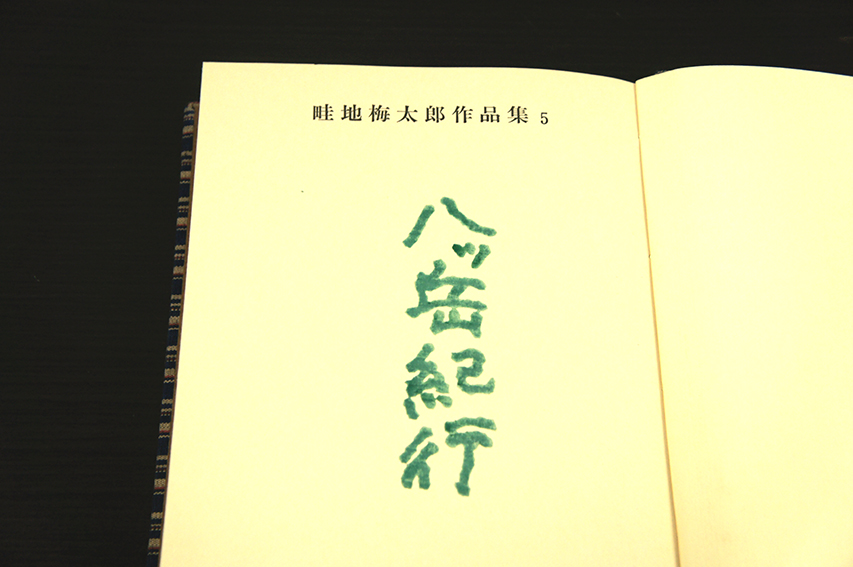 畦地梅太郎作品集 5
八ッ岳紀行